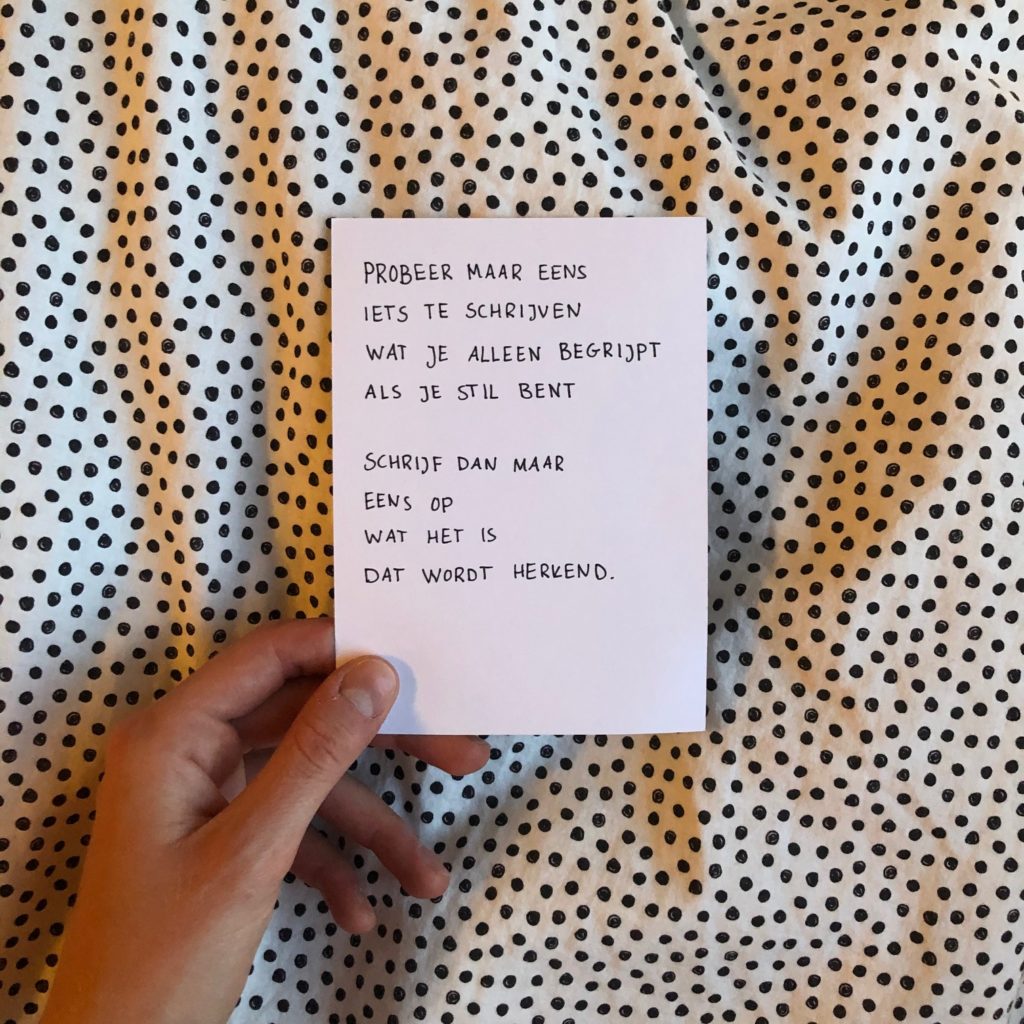 PROBEER MAAR EENS
IETS TE SCHRIJVEN
WAT JE ALLEEN BEGRIJPT
ALS JE STIL BENT
SCHRIJF DAN MAAR
EENS OP
WAT HET IS
DAT WORDT HERKEND.